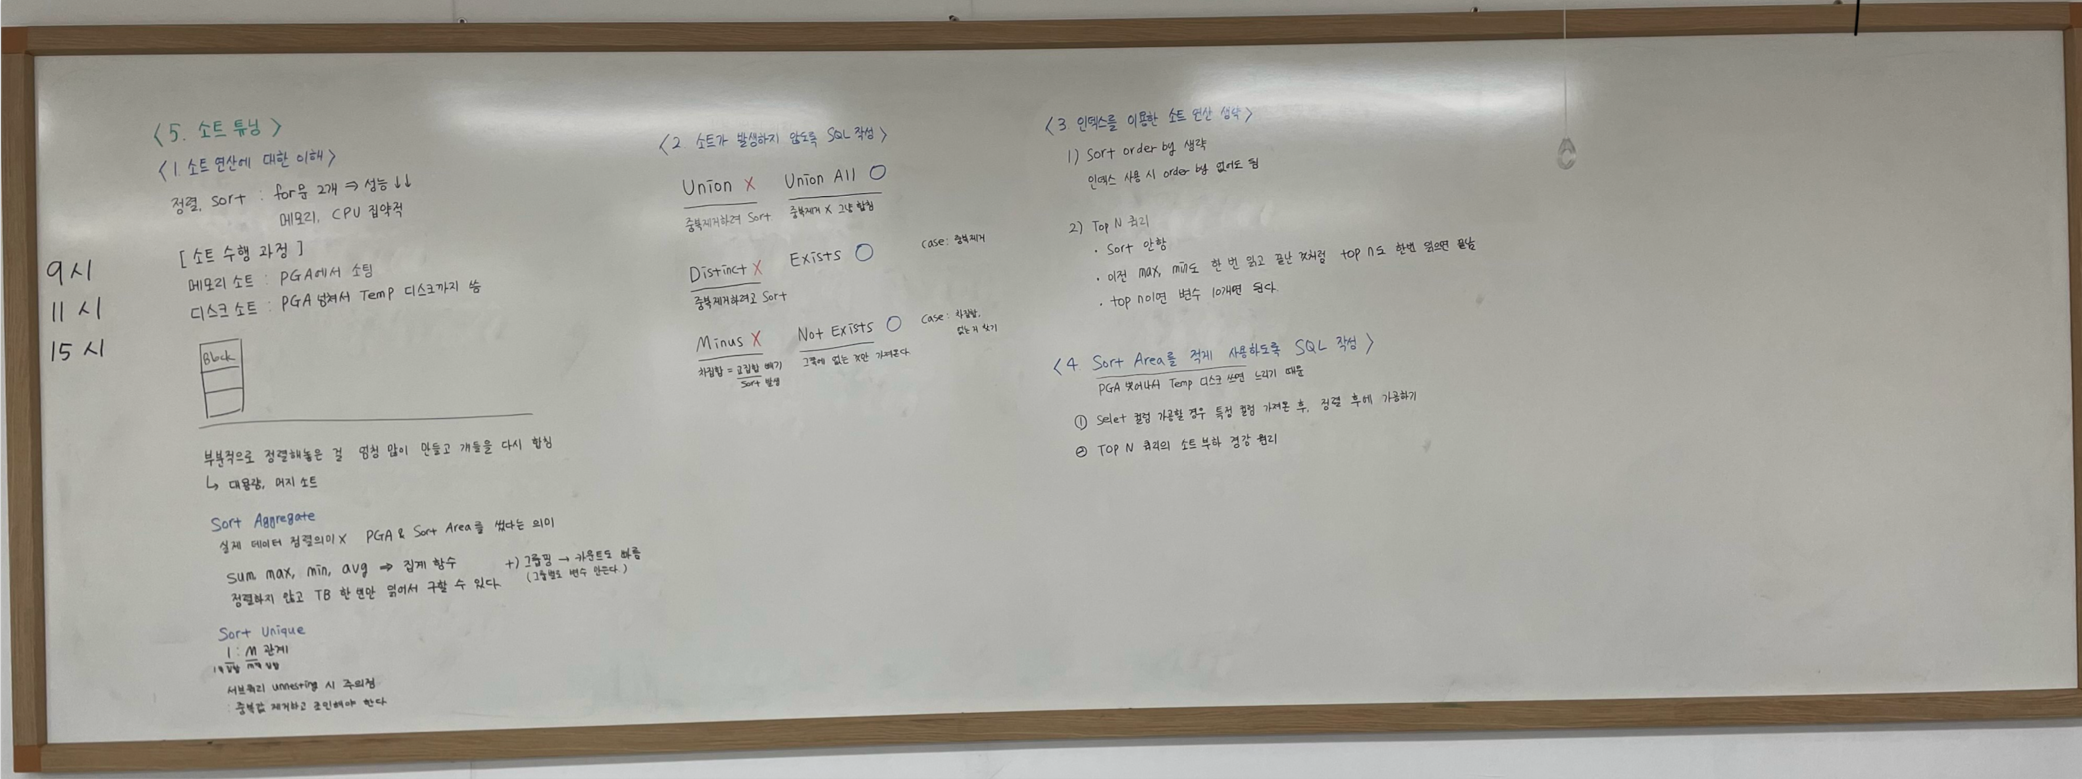 9시
11시
15시
<5. 소트 튜닝>
<1. 소트 연산에 대한 이해>
정렬, sort : for문 2개 ⇒ 성능 ↓↓
메모리, CPU 집약적
[소트 수행 과정]
메모리 소트 : PGA에서 소팅
디스크 소트 : PGA 넘쳐서 Temp 디스크까지 씀
Block
부분적으로 정렬해놓은 걸 엄청 많이 만들고 걔들을 다시 합침
↳ 대용량, 머지 소트
Sort Aggregate
실제 데이터 정렬의미 X PGA & Sort Area를 썼다는 의미
sum max, min, avg ⇒ 집계 함수
+) 그룹핑 → 카운트도 빠름
(그룹별로 변수 만든다.)
정렬하지 않고 TB 한 번만 읽어서 구할 수 있다.
Sort Unique
1 : M 관계
서브쿼리 unnesting 시 주의점
: 중복값 제거하고 조인해야 한다
<2. 소트가 발생하지 않도록 SQL 작성>
Union X Union All O
중복제거하려 Sort 중복제거 X 그냥 합침
Distinct X Exists O case : 중복제거
중복제거하려고 Sort
Minus X Not Exists O case : 차집합,
없는지 찾기
차집합 = 교집합 빼기 그쪽에 없는 것만 가져온다.
Sort 발생
<3. 인덱스를 이용한 소트 연산 생략>
1) Sort order by 생략
인덱스 사용 시 order by 없어도 됨
2) Top N 쿼리
· Sort 안함
· 이전 max, min도 한 번 읽고 끝난 것처럼 top n도 한번 읽으면 끝남
· top n이면 변수 10개면 된다.
<4. Sort Area를 적게 사용하도록 SQL 작성>
PGA 벗어나서 Temp 디스크 쓰면 느리기 때문
① Selet 컬럼 가공할 경우 특정 컬럼 가져온 후, 정렬 후에 가공하기
② TOP N 쿼리의 소트 부하 경감 원리